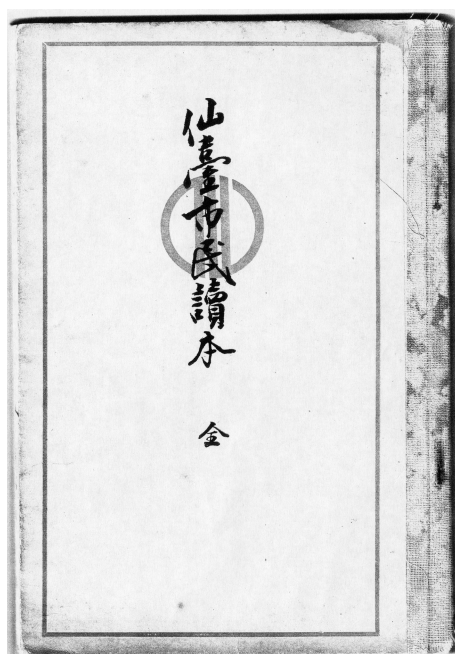 仙臺市民讀本
全